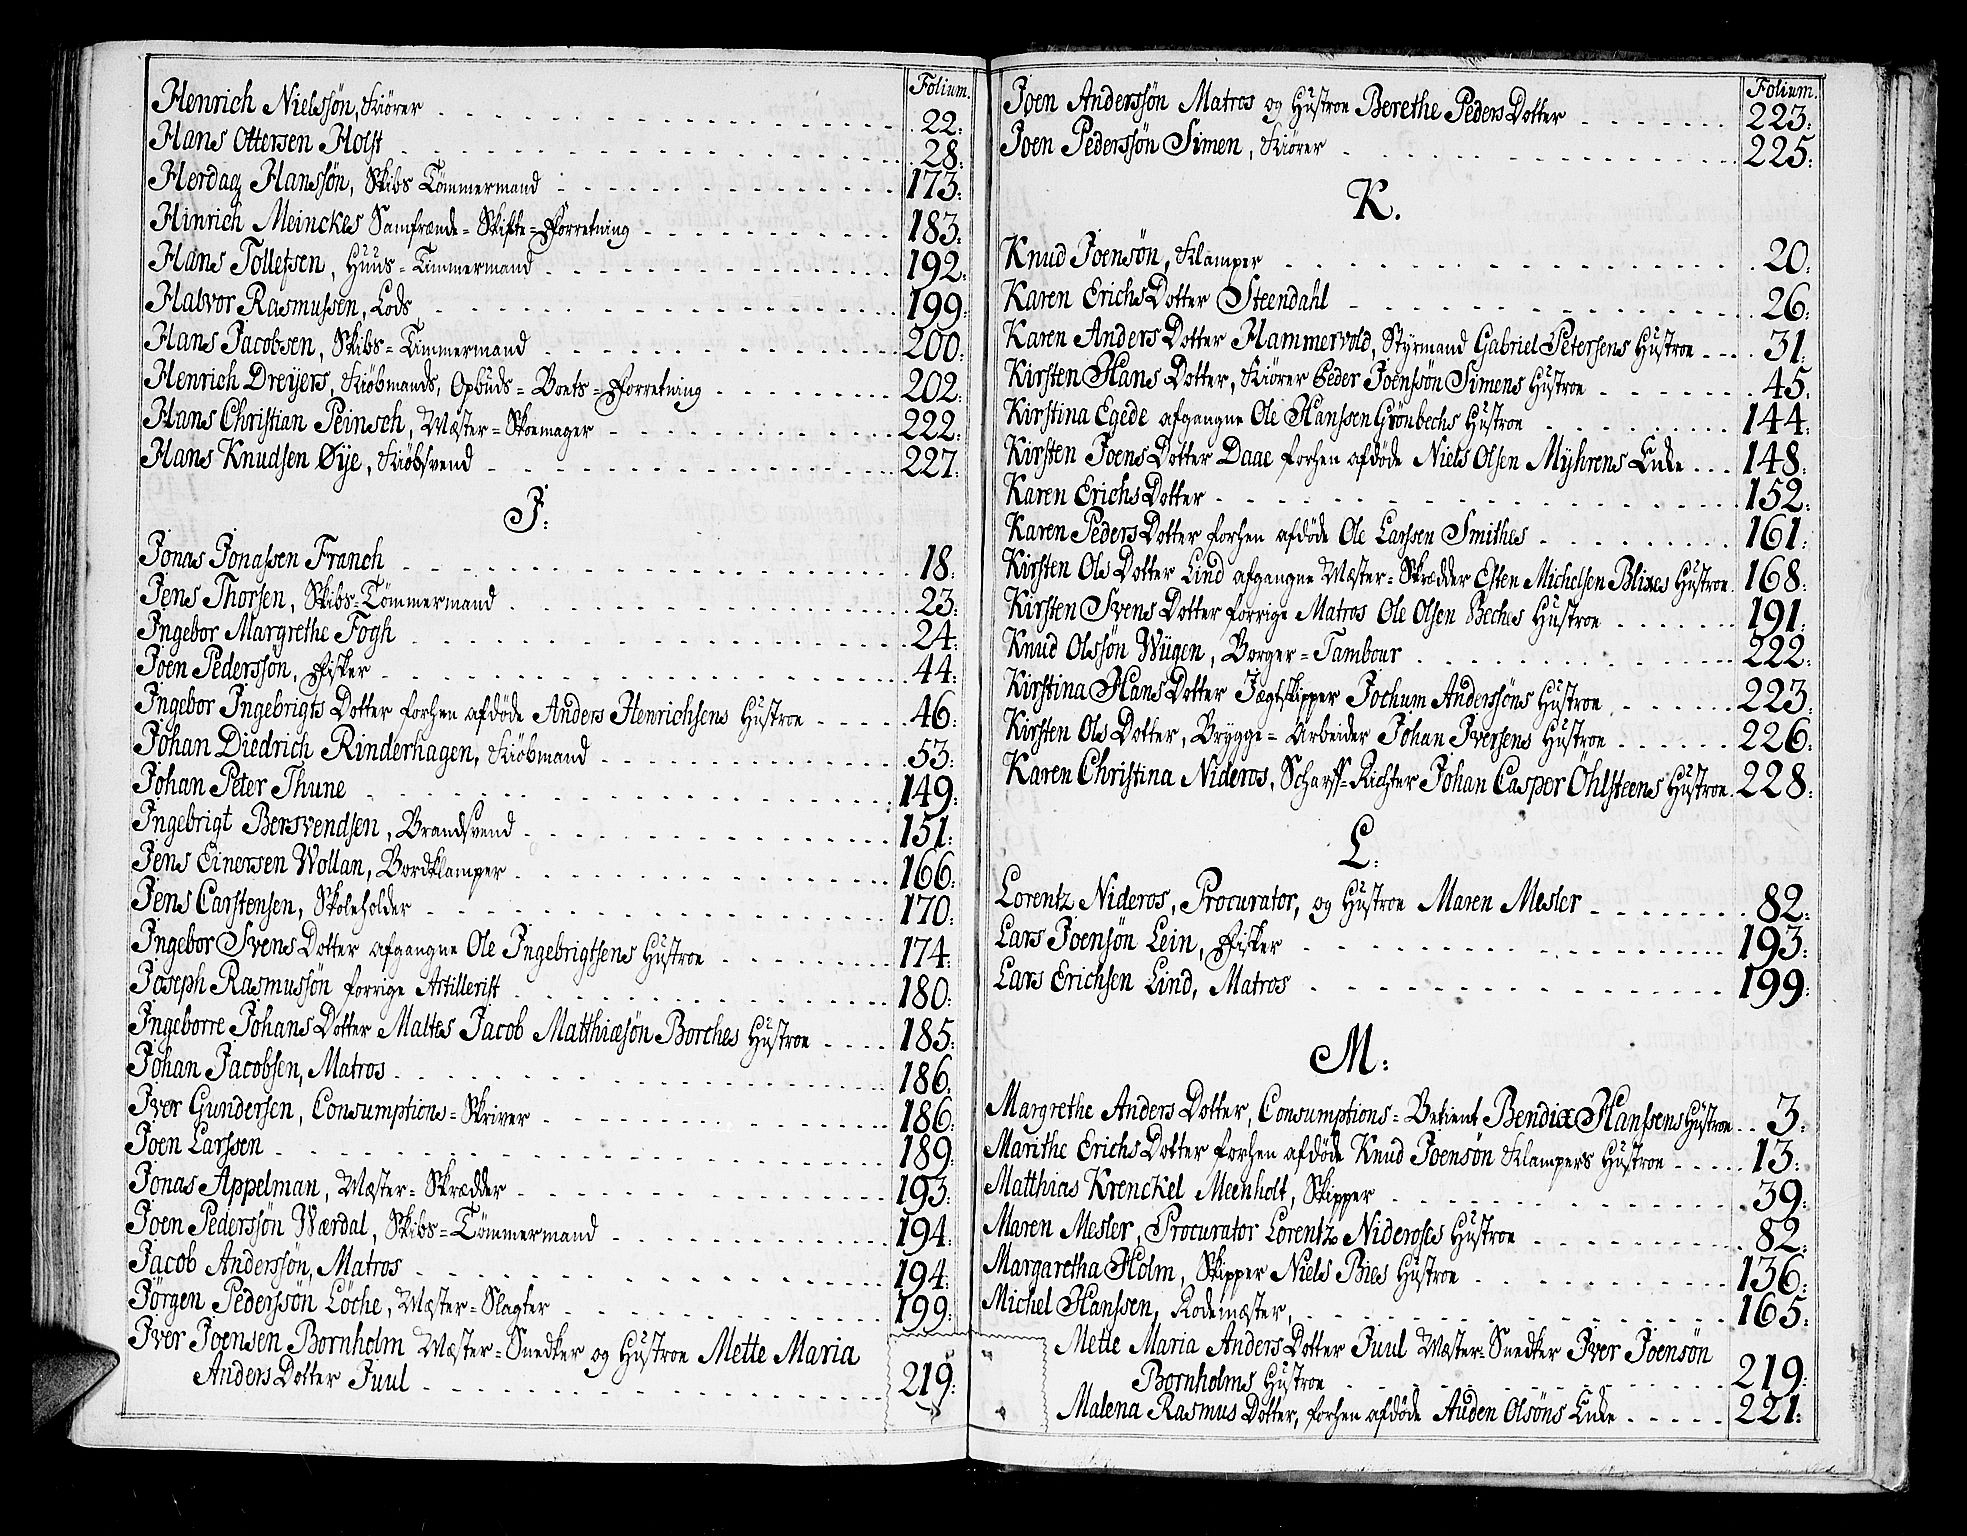 Folium.
Henrich Nielssøn, Kiører 22:
Hans Ottersen Holst 28:
Herdag Hanssøn, Skibs Tømmermand 173:
Hinrich Meinckes Samfrænde-Skifte-Forretning 183:
Hans Tollefsen, Huus-Timmermand 192:
Halvor Rasmussen, Lods 199:
Hans Jacobsen, Skibs-Timmermand 200:
Henrich Dreyers, Kiøbmands, Opbuds-Boets-Forretning 202:
Hans Christian Peinsch, Mæster-Skoemager 222:
Hans Knudsen Øye, Kiøbsvend 227:
J:
Jonas Jonassen Franch 18:
Jens Thorsen, Skibs-Tømmermand 23:
Ingebor Margrethe Fogh 24:
Joen Pederssøn, Fisker 44:
Ingebor Ingebrigts Dotter forhen afdøde Anders Henrichsens Hustroe 46:
Johan Diedrich Rinderhagen, Kiøbmand 53:
Johan Peter Thune 149:
Ingebrigt Bersvendsen, Brandsvend 151:
Jens Einersen Wollan, Bordklamper 166:
Jens Carstensen, Skoleholder 170:
Ingebor Svens Dotter afgangne Ole Ingebrigtsens Hustroe 174:
Joseph Rasmussøn forrige Artillerist 180:
Ingeborre Johans Dotter Maltes Jacob Matthiæsøn Borches Hustroe 185:
Johan Jacobsen, Matros 186:
Iver Gundersen, Consumptions-Skriver 186:
Joen Larssen 189:
Jonas Appelman, Mæster-Skrædder 193:
Joen Pederssøn Wærdal, Skibs-Tømmermand 194:
Jacob Anderssøn, Matros 194:
Jörgen Pederssøn Löche, Mæster-Slagter 199:
Iver Joensen Bornholm Mæster-Snedker og Hustroe Mette Maria
Anders Dotter Juul 219:
Folium.
Joen Anderssøn Matros og Hustroe Berethe Peders Dotter 223:
Joen Pederssøn Simen, Kiører 225:
K.
Knud Joensøn, Klamper 20:
Karen Erichs Dotter Steendahl 26:
Karen Anders Dotter Hammervold, Styrmand Gabriel Petersens Hustroe 31:
Kirsten Hans Dotter, Kiører Peder Joenssøn Simens Hustroe 45:
Kirstina Egede afgangne Ole Hanssen Grønbechs Hustroe 144:
Kirsten Joens Dotter Daae forhen afdøde Niels Olsen Myhrens Enke 148:
Karen Erichs Dotter 152:
Karen Peders Dotter forhen afdøde Ole Larssen Smithes 161:
Kirsten Ols Dotter Lind afgangne Mæster-Skrædder Esten Michelsen Blixes Hustroe 168:
Kirsten Svens Dotter forrige Matros Ole Olsen Beches Hustroe 191:
Knud Olssøn Wügen, Borger-Tambour 222:
Kirstina Hans Dotter Jagtskipper Jochum Anderssøns Hustroe 223:
Kirsten Ols Dotter, Brygge-Arbeider Johan Iversens Hustroe 226:
Karen Christina Nideros, Scharff-Richter Johan Casper Öhlsteens Hustroe 228:
L:
Lorentz Nideros, Procurator, og Hustroe Maren Mesler 82:
Lars Joensøn Lein, Fisker 193:
Lars Erichsen Lind, Matros 199:
M:
Margrethe Anders Dotter, Consumptions-Betient Bendix Hanssens Hustroe 3:
Marithe Erichs Dotter forhen afdøde Knud Joensøn Klampers Hustroe 13:
Matthias Krenckel Meenholt, Skipper 39:
Maren Mesler, Procurator Lorentz Nideroses Hustroe 82:
Margaretha Holm, Skipper Niels Bies Hustroe 136:
Michel Hanssen, Rodemæster, 165:
Mette Maria Anders Dotter Juul Mæster-Snedker Iver Joensøn
Bornholms Hustroe 219:
Malena Rasmus Dotter, forhen afdøde Auden Olsøns Enke 221: